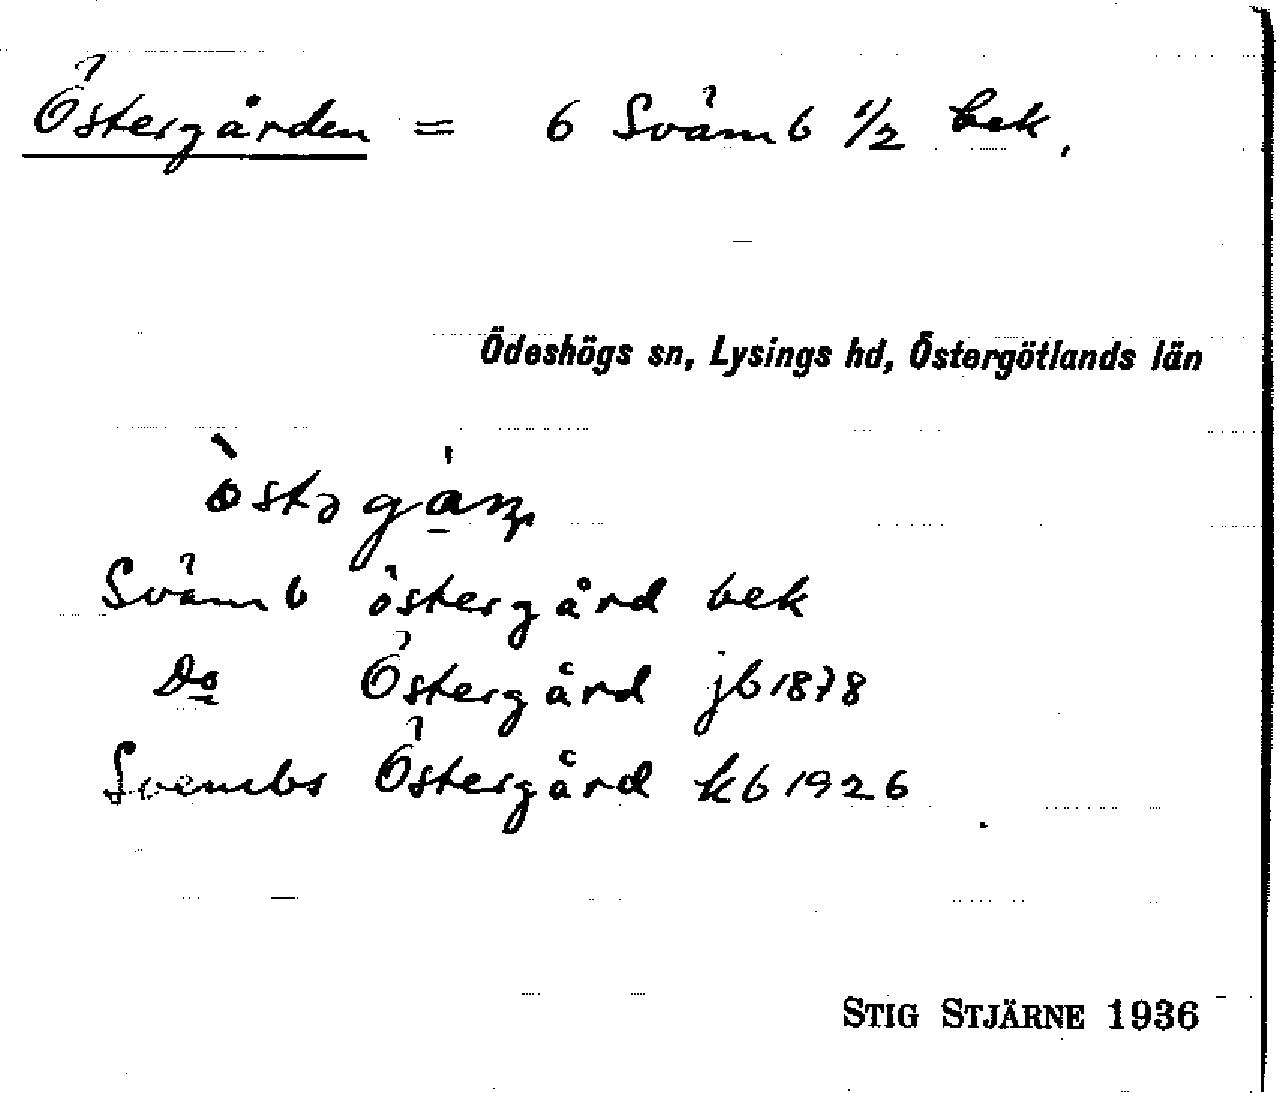 Östergården = 6 Svämb 1/2 bek.
Ödeshögs sn, Lysings hd, Östergötlands län
Svämb östergård bek
Do Östergård jb 1878
Svembs Östergård kb 1926
STIG STJÄRNE 1936